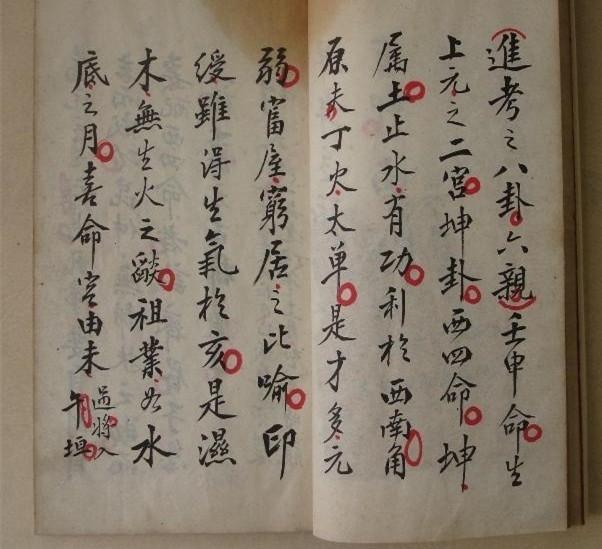 進考之八卦六親壬申命生
上元之二宮坤卦西四命坤
属土止水有功利於西南角
原夫丁火太单是才多元
弱富屋窮居之比喻印
綬雖得生氣於亥是濕
木無生火之燄祖業如水
底之月喜命宮由未過將入
午垣